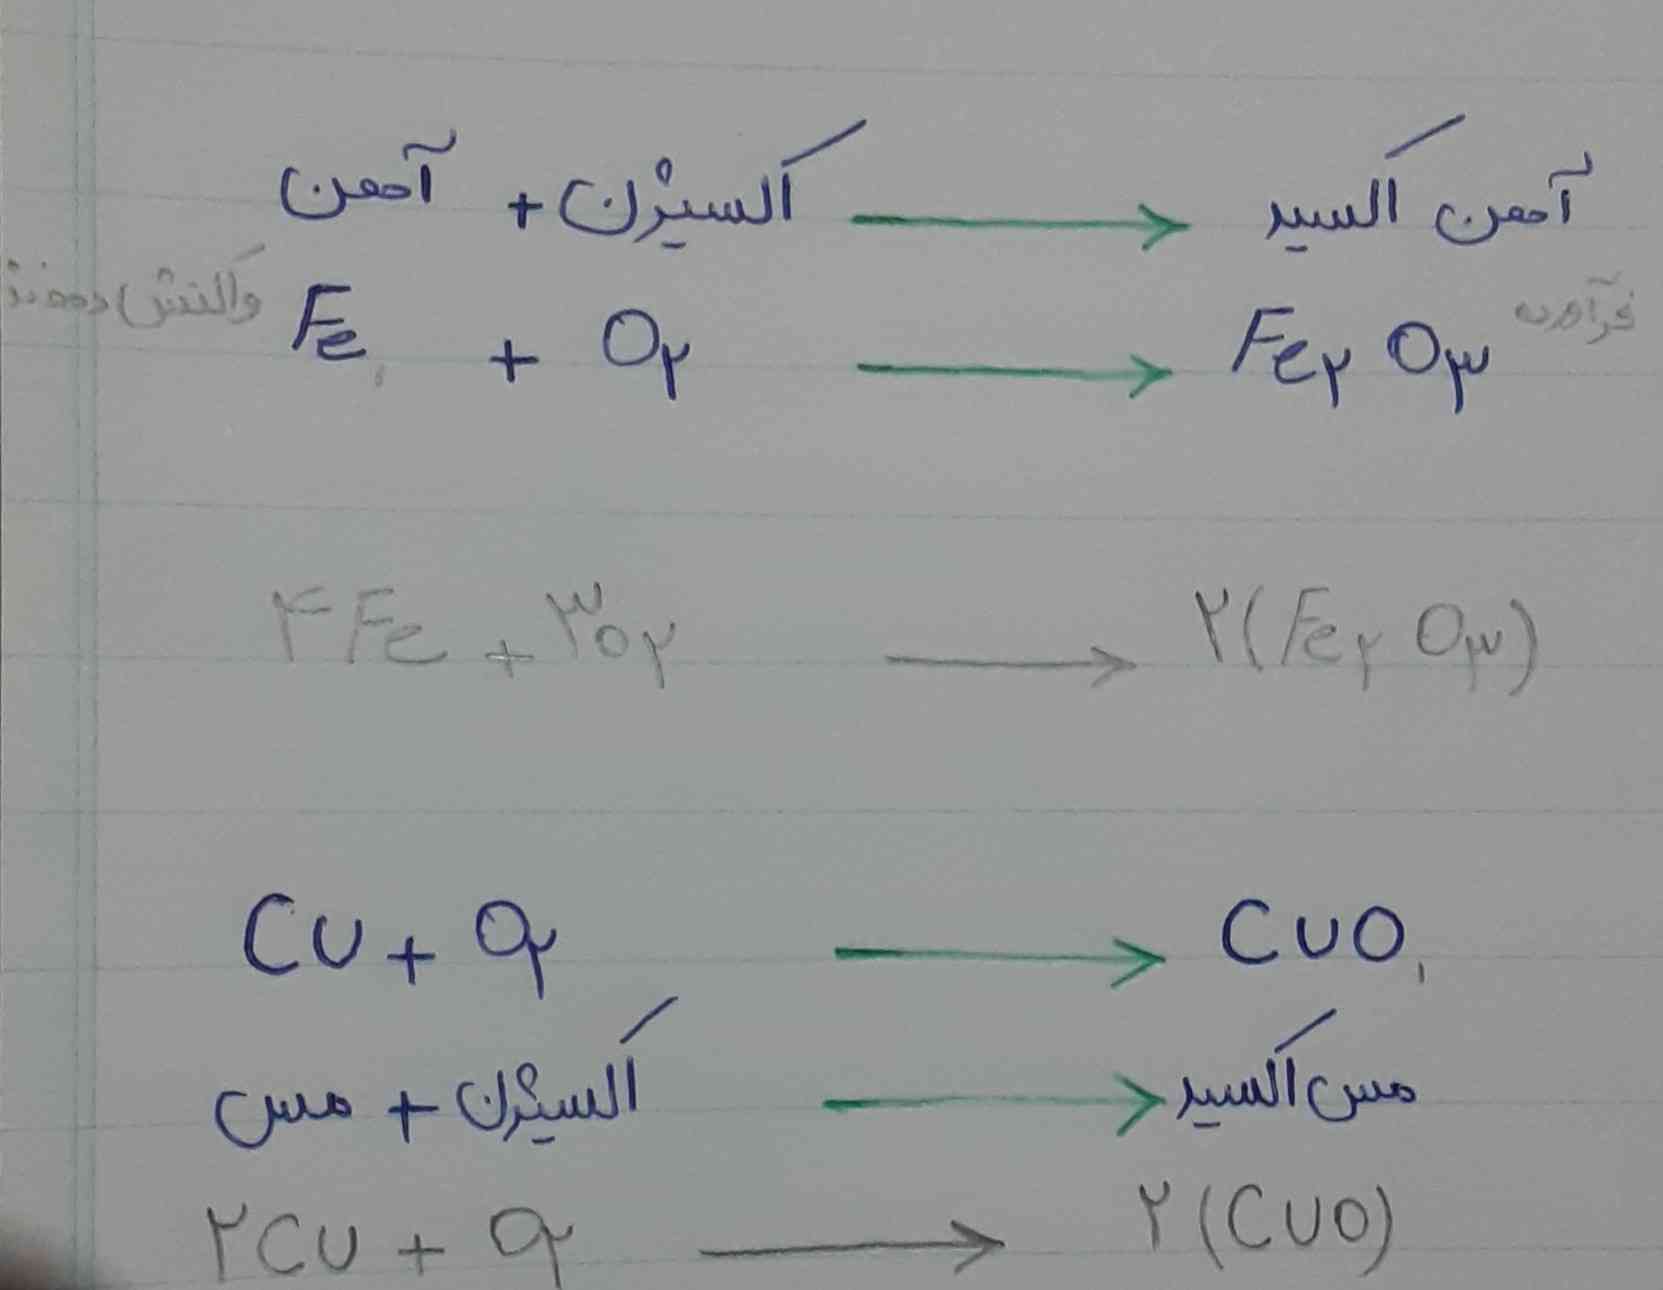 آهن + اکسیژن → آهن اکسید
واکنش دهنده Fe + O₂ → Fe₂ O₃ فرآورده
۴Fe + ۳O₂ → ۲(Fe₂ O₃)
Cu + O₂ → CuO₁
مس + اکسیژن → مس اکسید
۲Cu + O₂ → ۲(CuO)